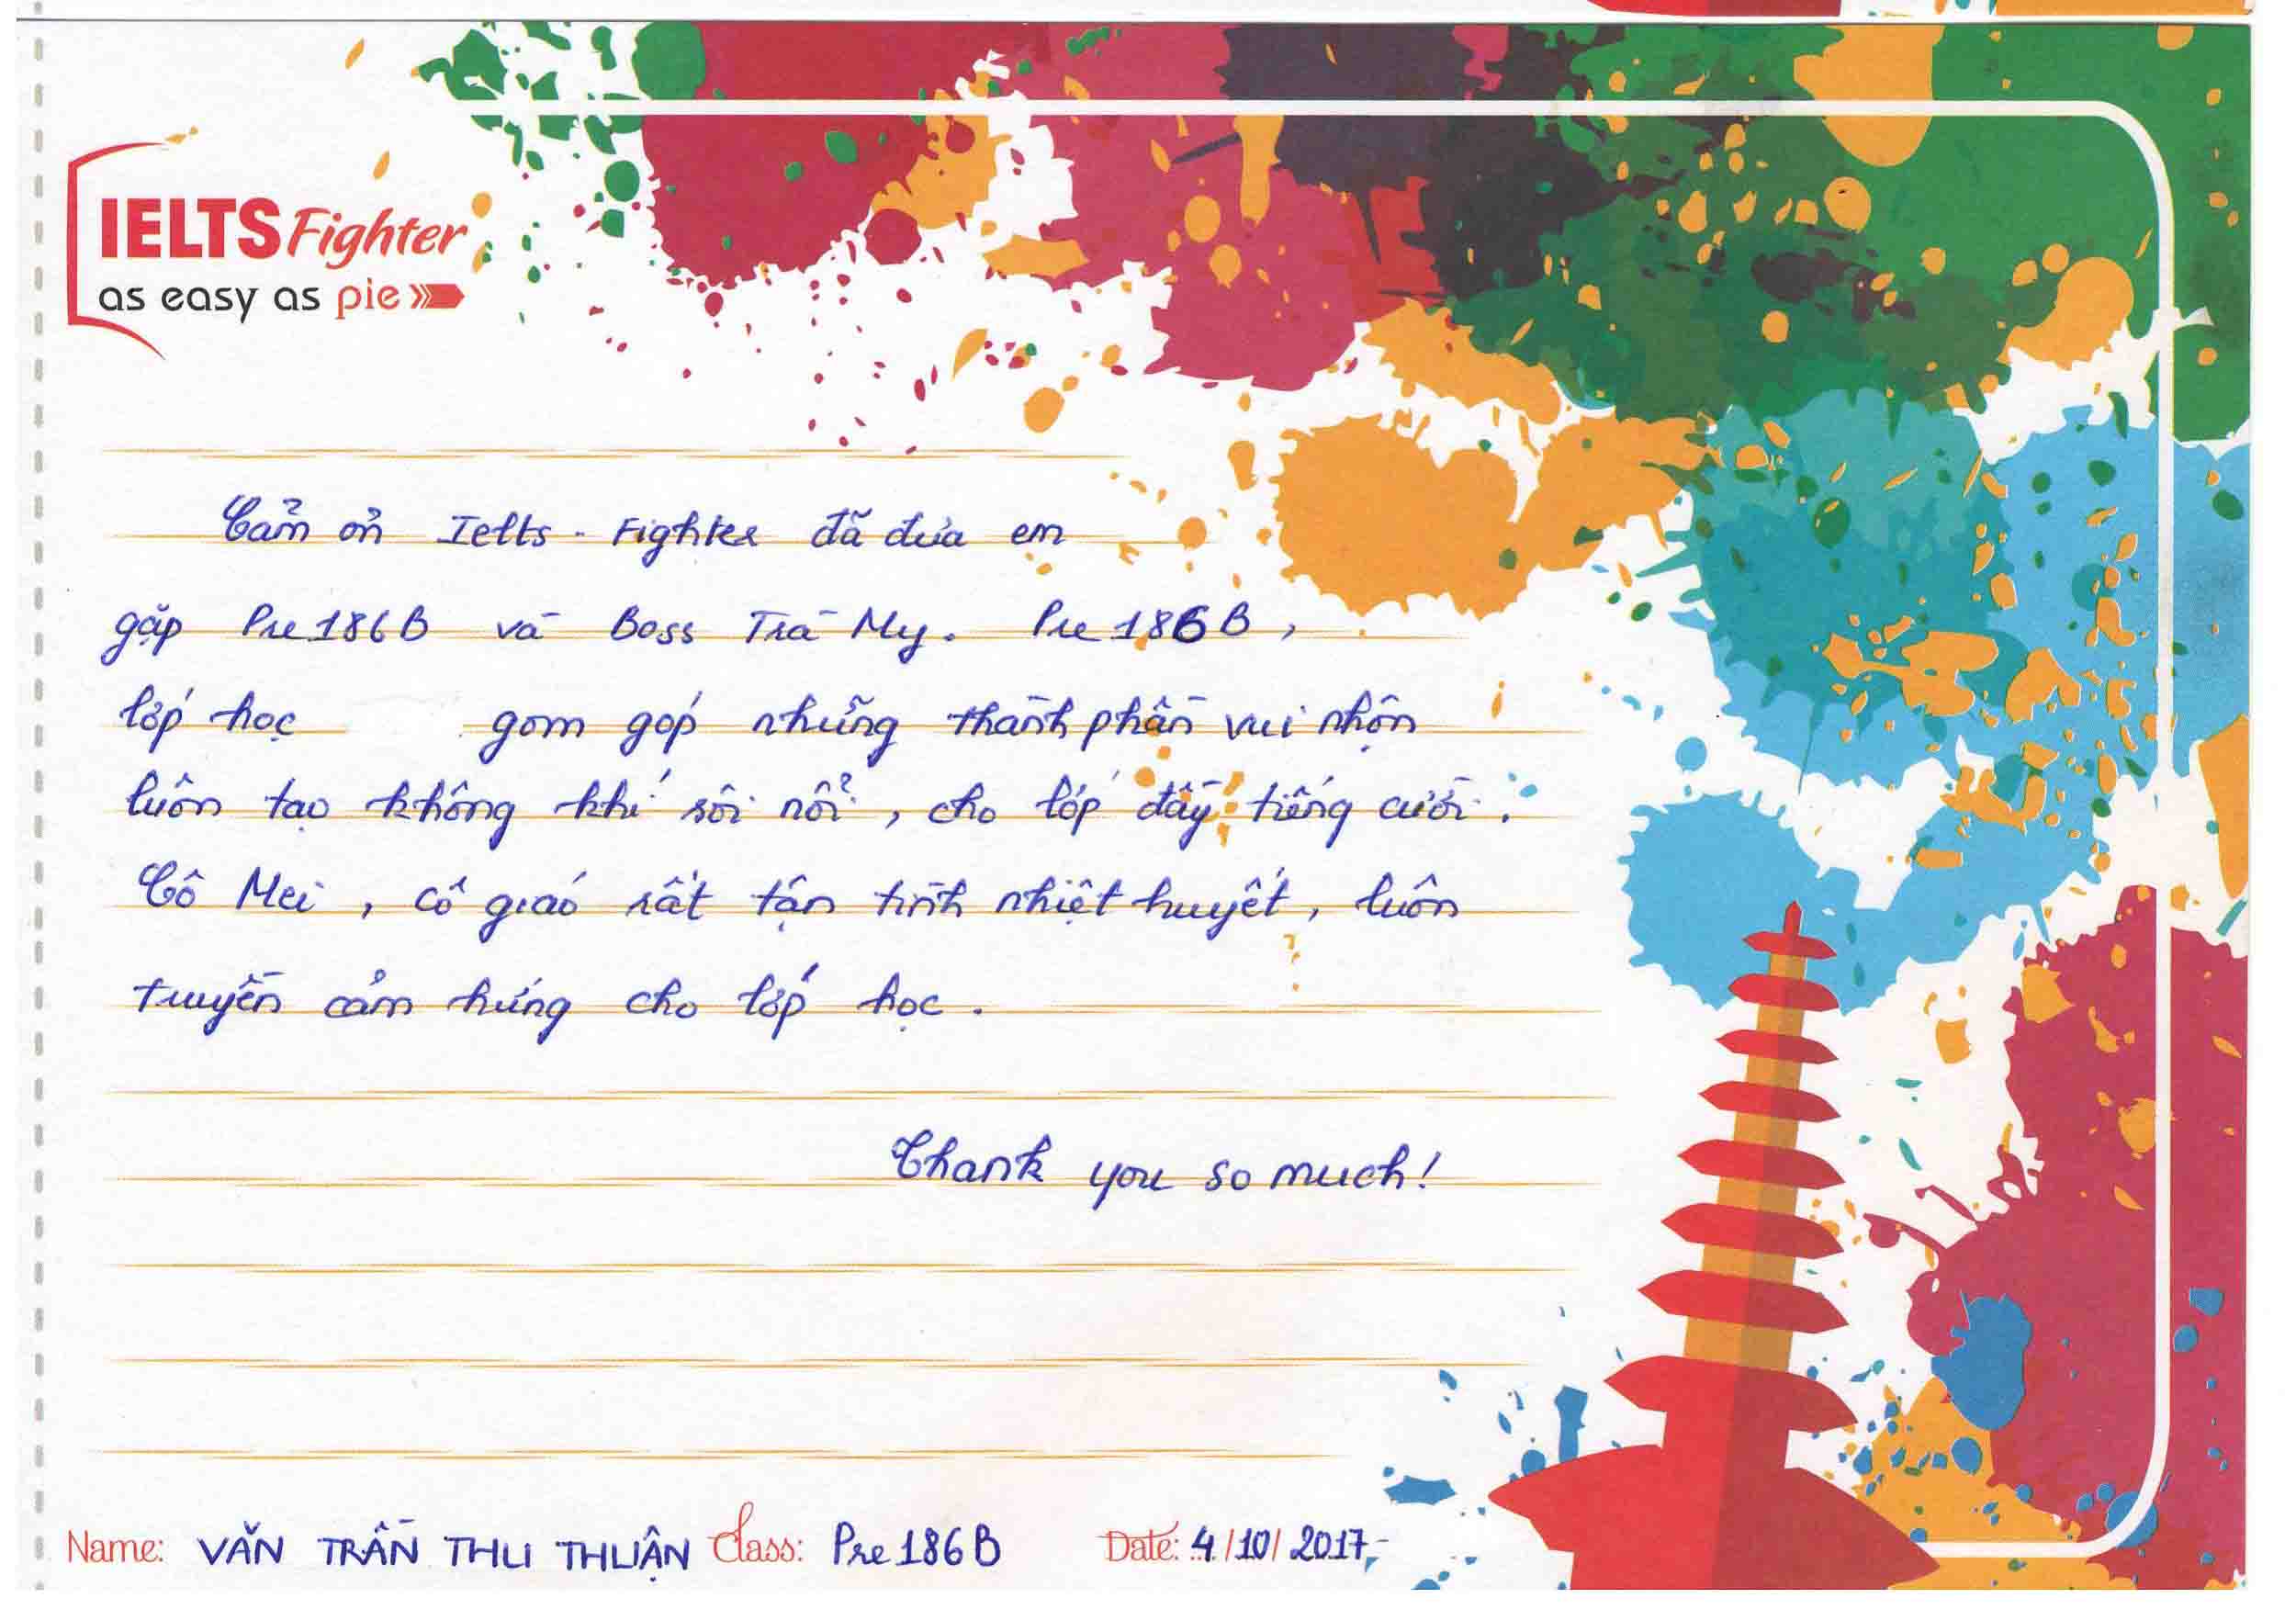 IELTS Fighter
as easy as pie
Cảm ơn Ielts - Fighter đã đưa em
gặp Pre186B và Boss Trà My. Pre 186B,
lớp học gom góp những thành phần vui nhộn
luôn tạo không khí sôi nổi, cho lớp đầy tiếng cười.
Cô Mei, cô giáo rất tận tình nhiệt huyết, luôn
truyền cảm hứng cho lớp học.
Thank you so much!
Name: VĂN TRẦN THU THUẬN Class: Pre186B Date: 4/10/2017